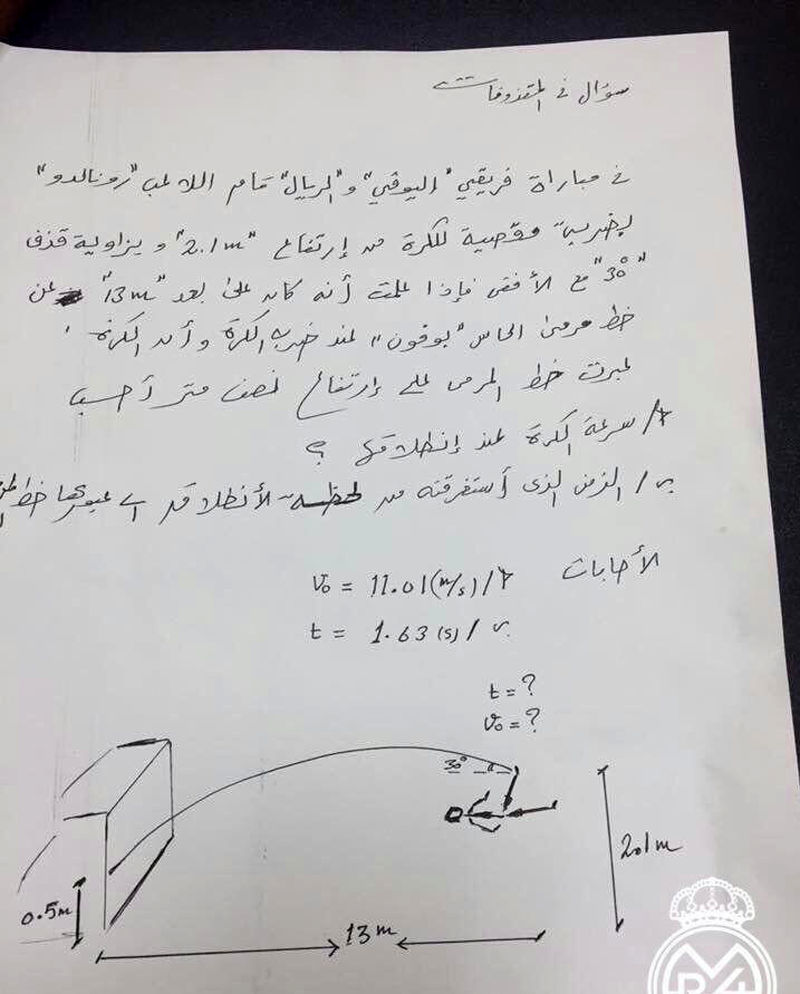 سؤال في المقذوفات
في مباراة فريقي "اليوفي" و"الريال" قام اللاعب "رونالدو"
بضربة مقصية للكرة من إرتفاع "2.1m" و بزاوية قذف
"30°" مع الأفق فإذا علمت أنه كان على بعد "13m" عن
خط مرمى الحارس "بوفون" عند ضرب الكرة وأن الكرة
عبرت خط المرمى على إرتفاع نصف متر أحسب
أ/ سرعة الكرة عند إنطلاقها ؟
ب/ الزمن الذى أستغرقته من لحظة الأنطلاق الى عبورها خط
الأجابات
أ/ v₀ = 11.01 (m/s)
ب/ t = 1.63 (s)
t = ?
v₀ = ?
30°
2.1m
0.5m
13m